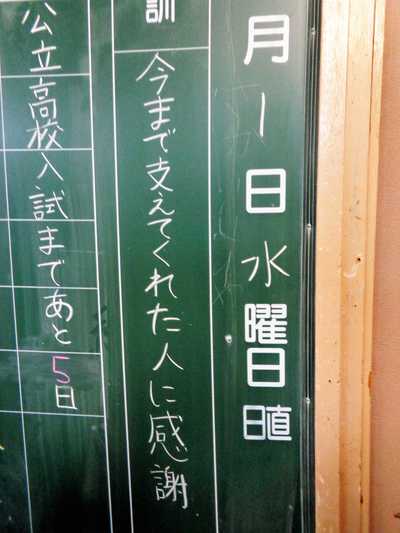 月1日水曜日
日直
訓
今まで支えてくれた人に感謝
公立高校入試まであと5日